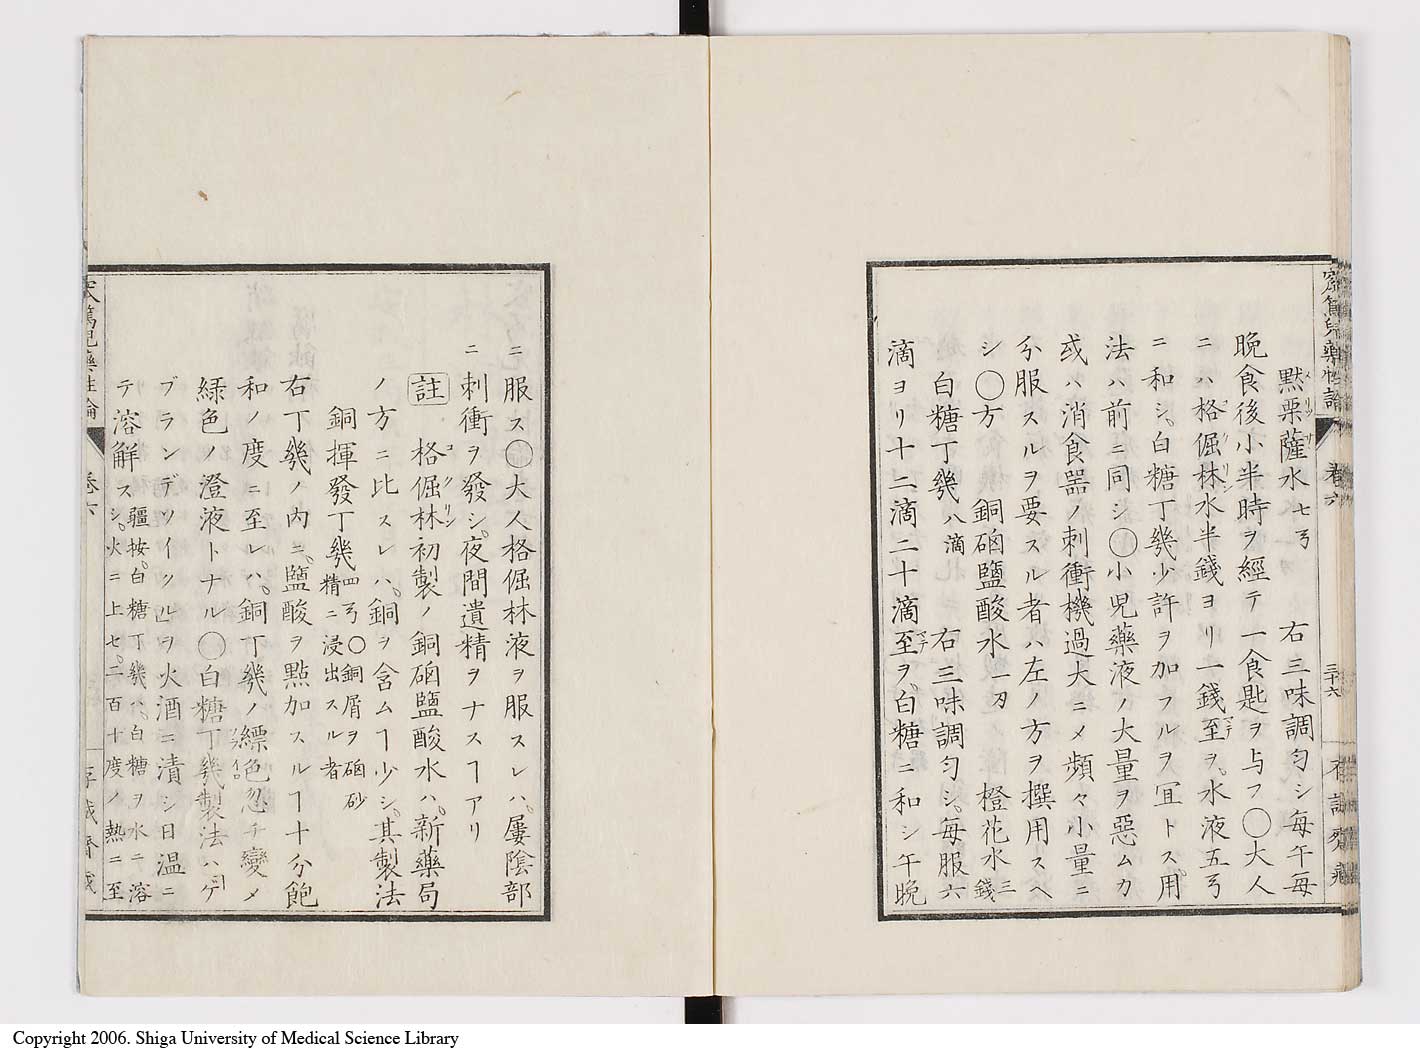 窊篤兒藥性論
卷六
三十六
存誠齋藏
黙栗薩水七弓 右三味調匀シ每午每
メリツサ
晩食後小半時ヲ經テ一食匙ヲ与フ〇大人
ニハ格倔林水半錢ヨリ一錢至ヲ。水液五弓
コクリン マテ
ニ和シ。白糖丁幾少許ヲ加フルヲ冝トス。用
法ハ前ニ同シ〇小児藥液ノ大量ヲ惡ムカ
或ハ消食器ノ刺衝機過大ニメ頻々小量ニ
分服スルヲ要スル者ハ左ノ方ヲ撰用スヘ
シ〇方 銅硇鹽酸水一刃 橙花水三錢
白糖丁幾八滴 右三味調匀シ。每服六
滴ヨリ十二滴二十滴至ヲ。白糖ニ和シ午晩
マテ
ニ服ス〇大人格倔林液ヲ服スレハ。屢陰部
ニ刺衝ヲ發シ。夜間遺精ヲナスヿアリ
註 格倔林初製ノ銅硇鹽酸水ハ。新藥局
コクリン
ノ方ニ比スレハ。銅ヲ含ムヿ少シ。其製法
銅揮發丁幾四弓〇銅屑ヲ硇砂精ニ浸出スル者
右丁幾ノ内ニ。鹽酸ヲ點加スルヿ十分飽
和ノ度ニ至レハ。銅丁幾ノ縹色忽チ變メ
緑色ノ澄液トナル〇白糖丁幾製法ハゲ
ブランデツイン凵ヲ火酒ニ漬シ日温ニ
テ溶解ス疆按。白糖丁幾ハ。白糖ヲ水ニ溶シ。火ニ上セ。二百十度ノ熱ニ至
窊篤兒藥性論
卷六
存誠齋藏